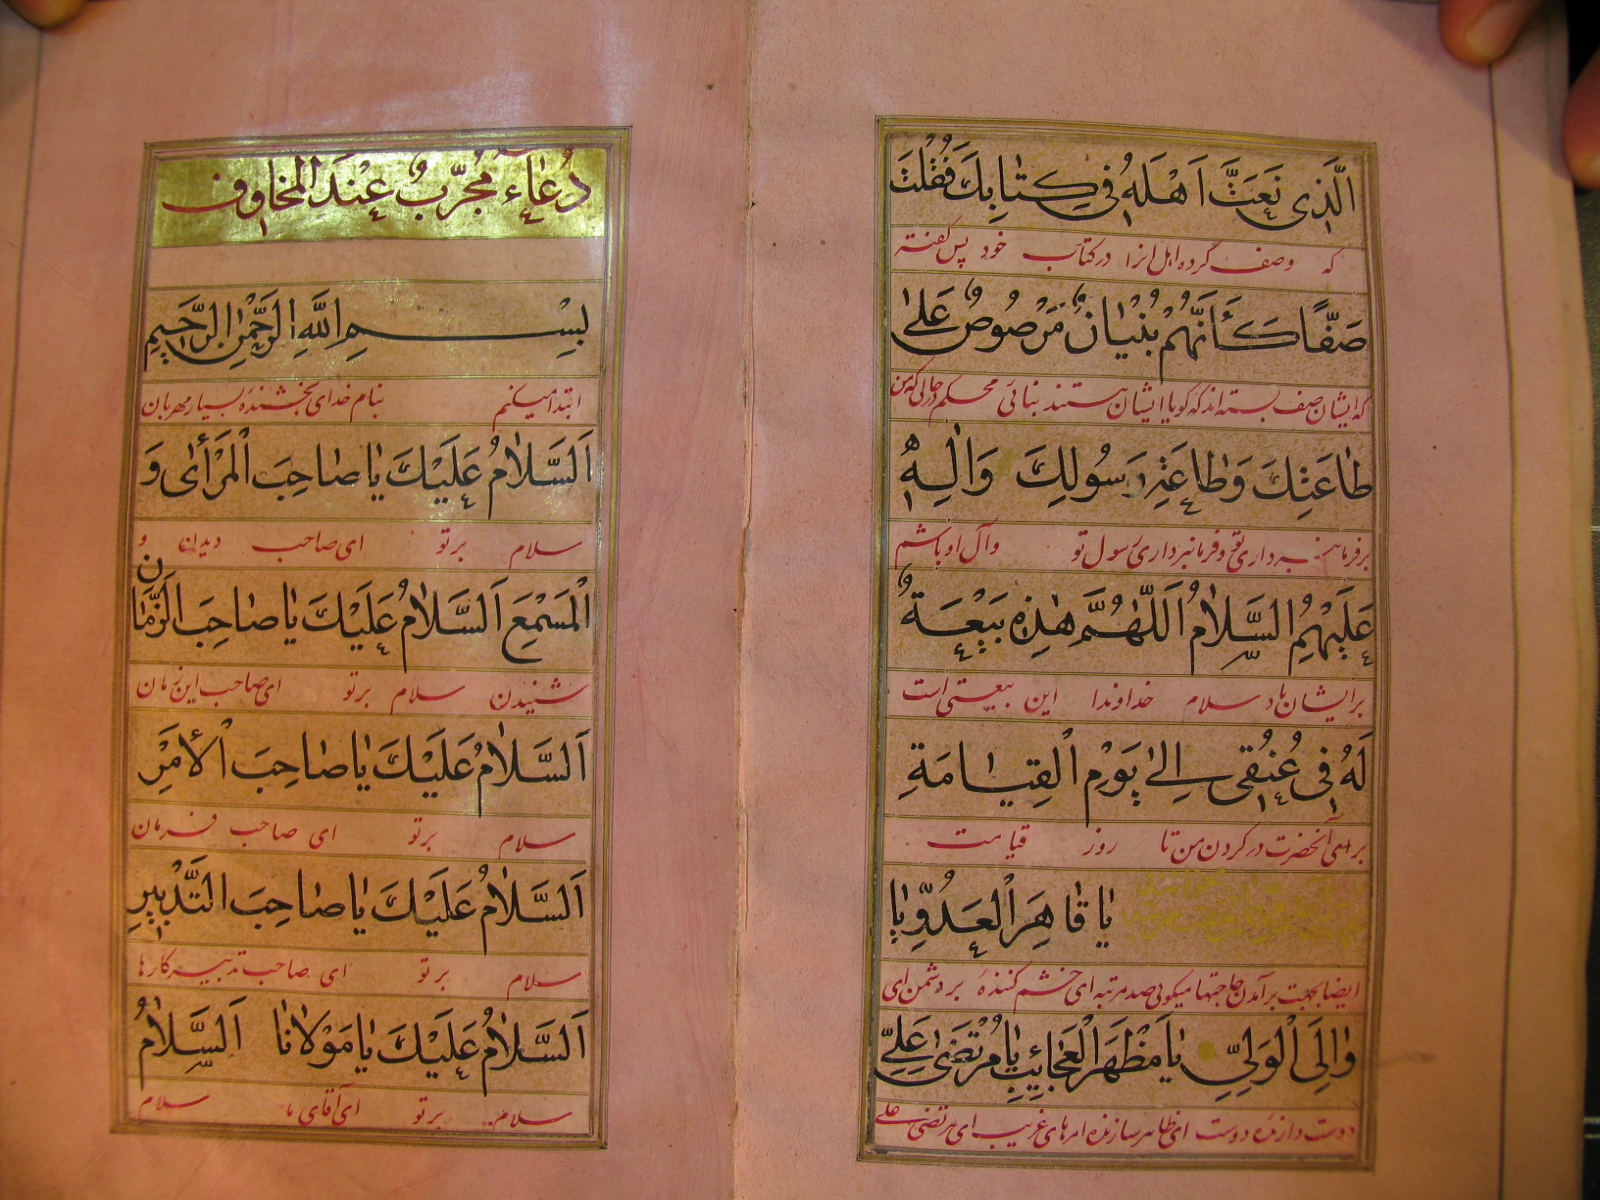 الَّذِی نَعَتَّ اَهْلَهُ فِی كِتَابِكَ فَقُلْتَ
که وصف کرده اهل انرا در کتاب خود پس گفته
صَفّاً كَاَنَّهُمْ بُنْیَانٌ مَرْصُوصٌ عَلیٰ
که ایشان صف بسته اند که گویا ایشان هستند بنائی محکم در حالی که من
طَاعَتِكَ وَطَاعَةِ رَسُولِكَ وَالِهِ
بر فرمانبرداری تو و فرمانبرداری رسول تو و آل او باشم
عَلَیْهِمُ السَّلَامُ اَللّٰهُمَّ هٰذِهِ بَیْعَةٌ
بر ایشان باد سلام خداوندا این بیعتی است
لَهُ فِی عُنُقِی اِلیٰ یَوْمِ الْقِیَامَةِ
برای آنحضرت در گردن من تا روز قیامت
یَا قَاهِرَ الْعَدُوِّ یَا
ایضا بجهت برآمدن حاجتها میگوئی صد مرتبه ای خشم کننده بر دشمن ای
وَالِیَ الْوَلِیِّ یَا مَظْهَرَ الْعَجَائِبِ یَا مُرْتَضیٰ عَلِیُّ
دوست دارنده دوست ای ظاهر سازنده امرهای غریب ای مرتضی علی
دُعَاءِ مُجَرَّبٌ عِنْدَ الْمَخَاوِفِ
بِسْمِ اللّٰهِ الرَّحْمٰنِ الرَّحِیمِ
ابتدا میکنم بنام خدای بخشنده بسیار مهربان
اَلسَّلَامُ عَلَیْكَ یَا صَاحِبَ الْمَرْأٰی وَ
سلام بر تو ای صاحب دیدن و
الْمَسْمَعِ اَلسَّلَامُ عَلَیْكَ یَا صَاحِبَ الزَّمَانِ
شنیدن سلام بر تو ای صاحب این زمان
اَلسَّلَامُ عَلَیْكَ یَا صَاحِبَ الْأَمْرِ
سلام بر تو ای صاحب فرمان
اَلسَّلَامُ عَلَیْكَ یَا صَاحِبَ التَّدْبِیرِ
سلام بر تو ای صاحب تدبیر کارها
اَلسَّلَامُ عَلَیْكَ یَا مَوْلَانَا اَلسَّلَامُ
سلام بر تو ای آقای ما سلام